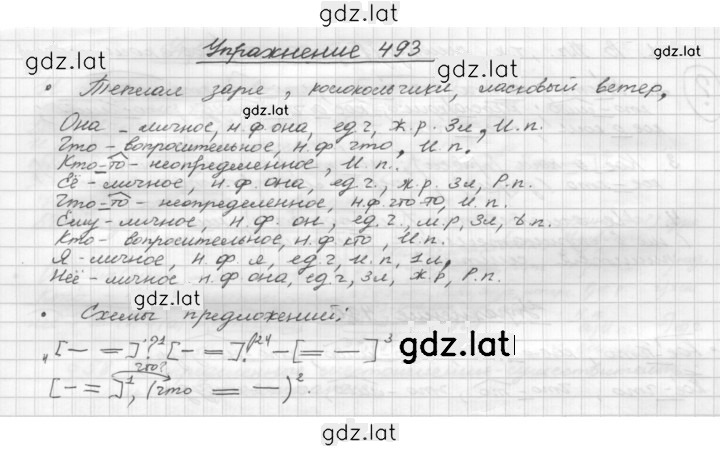 gdz.lat
Упражнение 493
gdz.lat
gdz.lat
• Теплая заря, колокольчики, ласковый ветер,
gdz.lat
Она - личное, н.ф она, ед.ч, ж.р. 3л, И.п.
Что - вопросительное, н.ф что, И.п.
Кто-то - неопределенное, И.п.
Её - личное, н.ф. она, ед.ч., ж.р. 3л, Р.п.
Что-то - неопределенное, н.ф. что-то, И.п.
Ему - личное, н.ф. он, ед.ч., м.р, 3л,
Кто - вопросительное, н.ф кто, И.п.
Я - личное, н.ф. я, ед.ч, И.п, 1л,
Неё - личное н.ф она, ед.ч, 3л, ж.р, Р.п.
gdz.lat
• Схемы предложений:
„[— =]?¹ [- =]! — [= —]³
gdz.lat
что?
[- =]¹, (что = —)².
gdz.lat